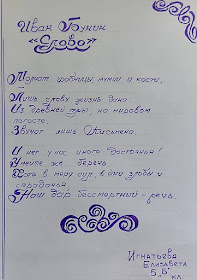 Иван Бунин
"Слово"
Молчат гробницы, мумии и кости,
Лишь слову жизнь дана:
Из древней тьмы, на мировом
погосте,
Звучат лишь Письмена.
И нет у нас иного достояния!
Умейте же беречь
Хоть в меру сил, в дни злобы и
страданья,
Наш дар бессмертный - речь.
Игнатьева
Елизавета
5 "В"
кл.